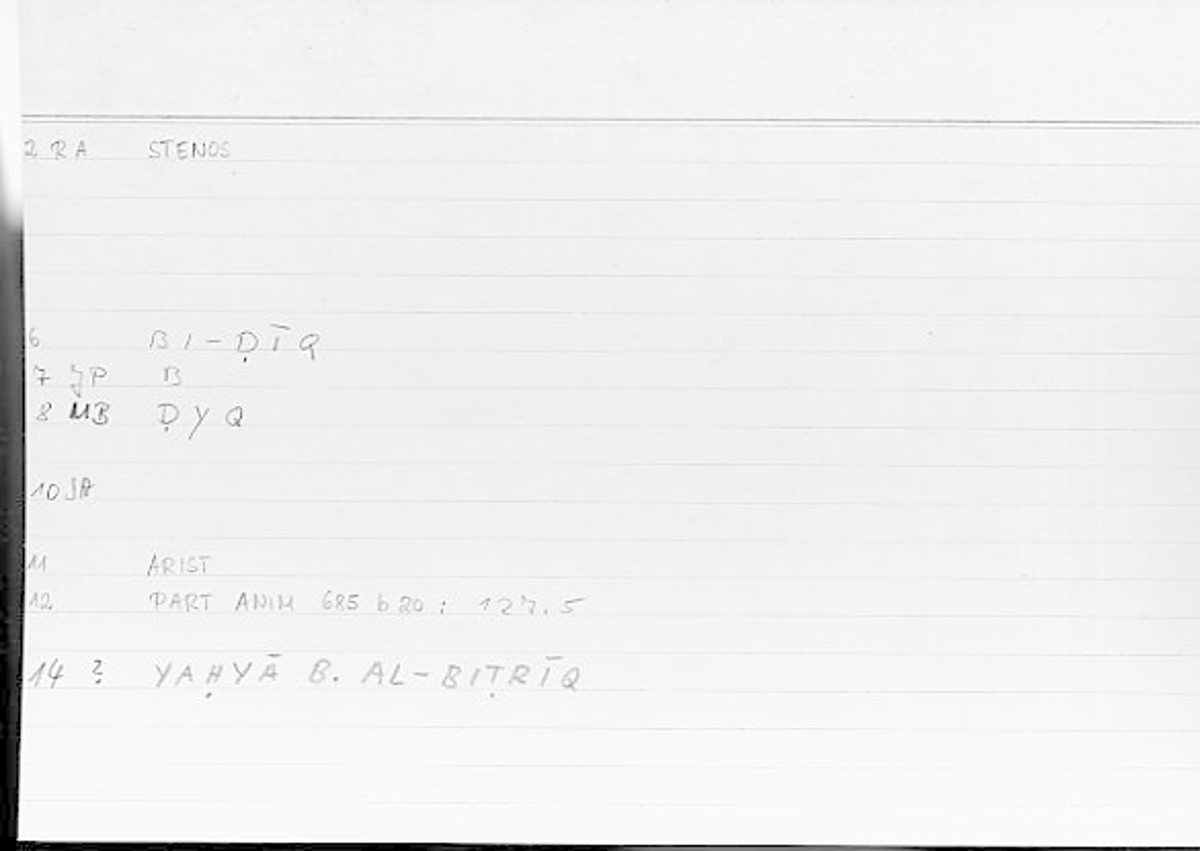 2 R A STENOS
6 BI-ḌĪQ
7 JP B
8 MB ḌYQ
10 JA
11 ARIST
12 PART ANIM 685 b 20 : 127.5
14 ? YAḤYĀ B. AL-BIṬRĪQ